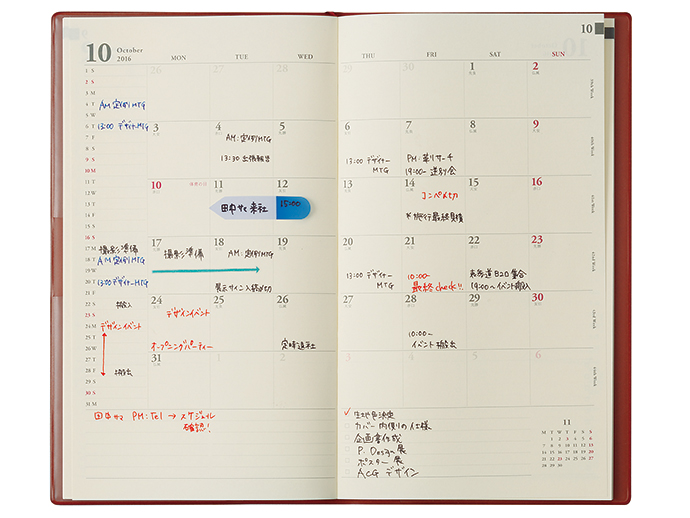 10 October
2016
MON TUE WED
THU FRI SAT SUN
10
26 27 28
29 30 1 2
3 4 5
6 7 8 9
10 11 12
13 14 15 16
17 18 19
20 21 22 23
24 25 26
27 28 29 30
31 1 2
3 4 5 6
1 S
2 S
3 M
4 T AM 定例MTG
5 W
6 T 13:00 デザイナーMTG
7 F
8 S
9 S
10 M
11 T
12 W
13 T
14 F
15 S
16 S
17 M 撮影準備
18 T AM 定例MTG
19 W
20 T 13:00 デザイナーMTG
21 F
22 S 搬入
23 S
24 M デザインイベント
25 T
26 W
27 T
28 F 搬出
29 S
30 S
31 M
AM:定例MTG
13:30 出張報告
13:00 デザイナー
MTG
PM:革リサーチ
19:00~ 送別会
田中サマ 来社 15:00
コンペ〆切
*旅行最終見積
撮影準備
AM:定例MTG
展示サイン入稿〆切
13:00 デザイナー
MTG
10:00~
最終check!!
表参道B2O集合
19:00~イベント搬入
デザインイベント
オープニングパーティー
定時退社
10:00~
イベント搬出
PM:Tel → スケジュール
確認!
✓ 生地色決定
カバー内側の仕様
企画書作成
P. Design 展
ポスター 展
ACG デザイン
11
M T W T F S S
1 2 3 4 5 6
7 8 9 10 11 12 13
14 15 16 17 18 19 20
21 22 23 24 25 26 27
28 29 30